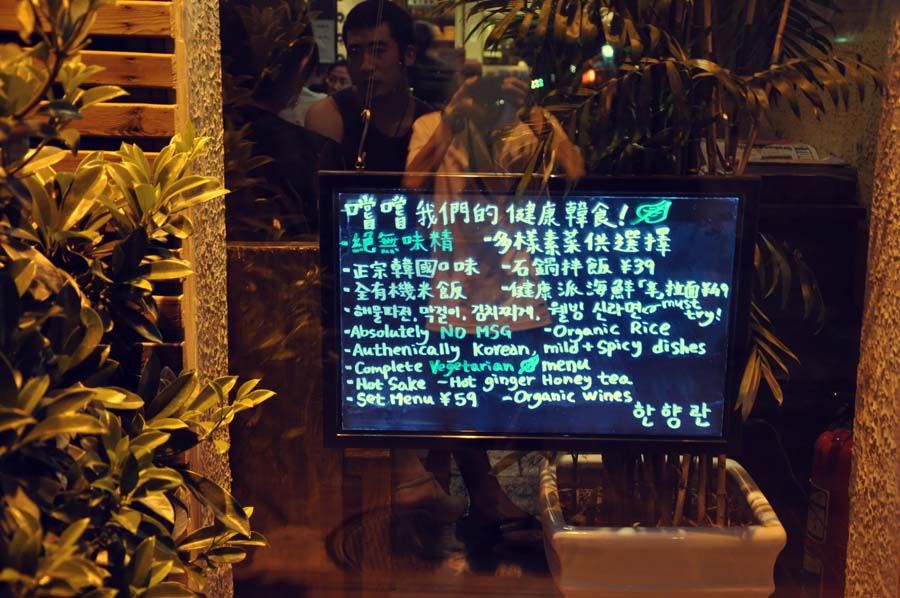 嚐嚐我們的健康韓食!
-絕無味精 -多樣素菜供選擇
-正宗韓國口味 -石鍋拌飯 ¥39
-全有機米飯 -健康派海鮮「享」拉面¥49
-해물파전, 막걸이, 김치찌개, 웰빙 신라면 must try!
-Absolutely NO MSG -Organic Rice
-Authenically Korean, mild + spicy dishes
-Complete Vegetarian menu
-Hot Sake -Hot ginger Honey tea
-Set Menu ¥59 -Organic wines
한향란